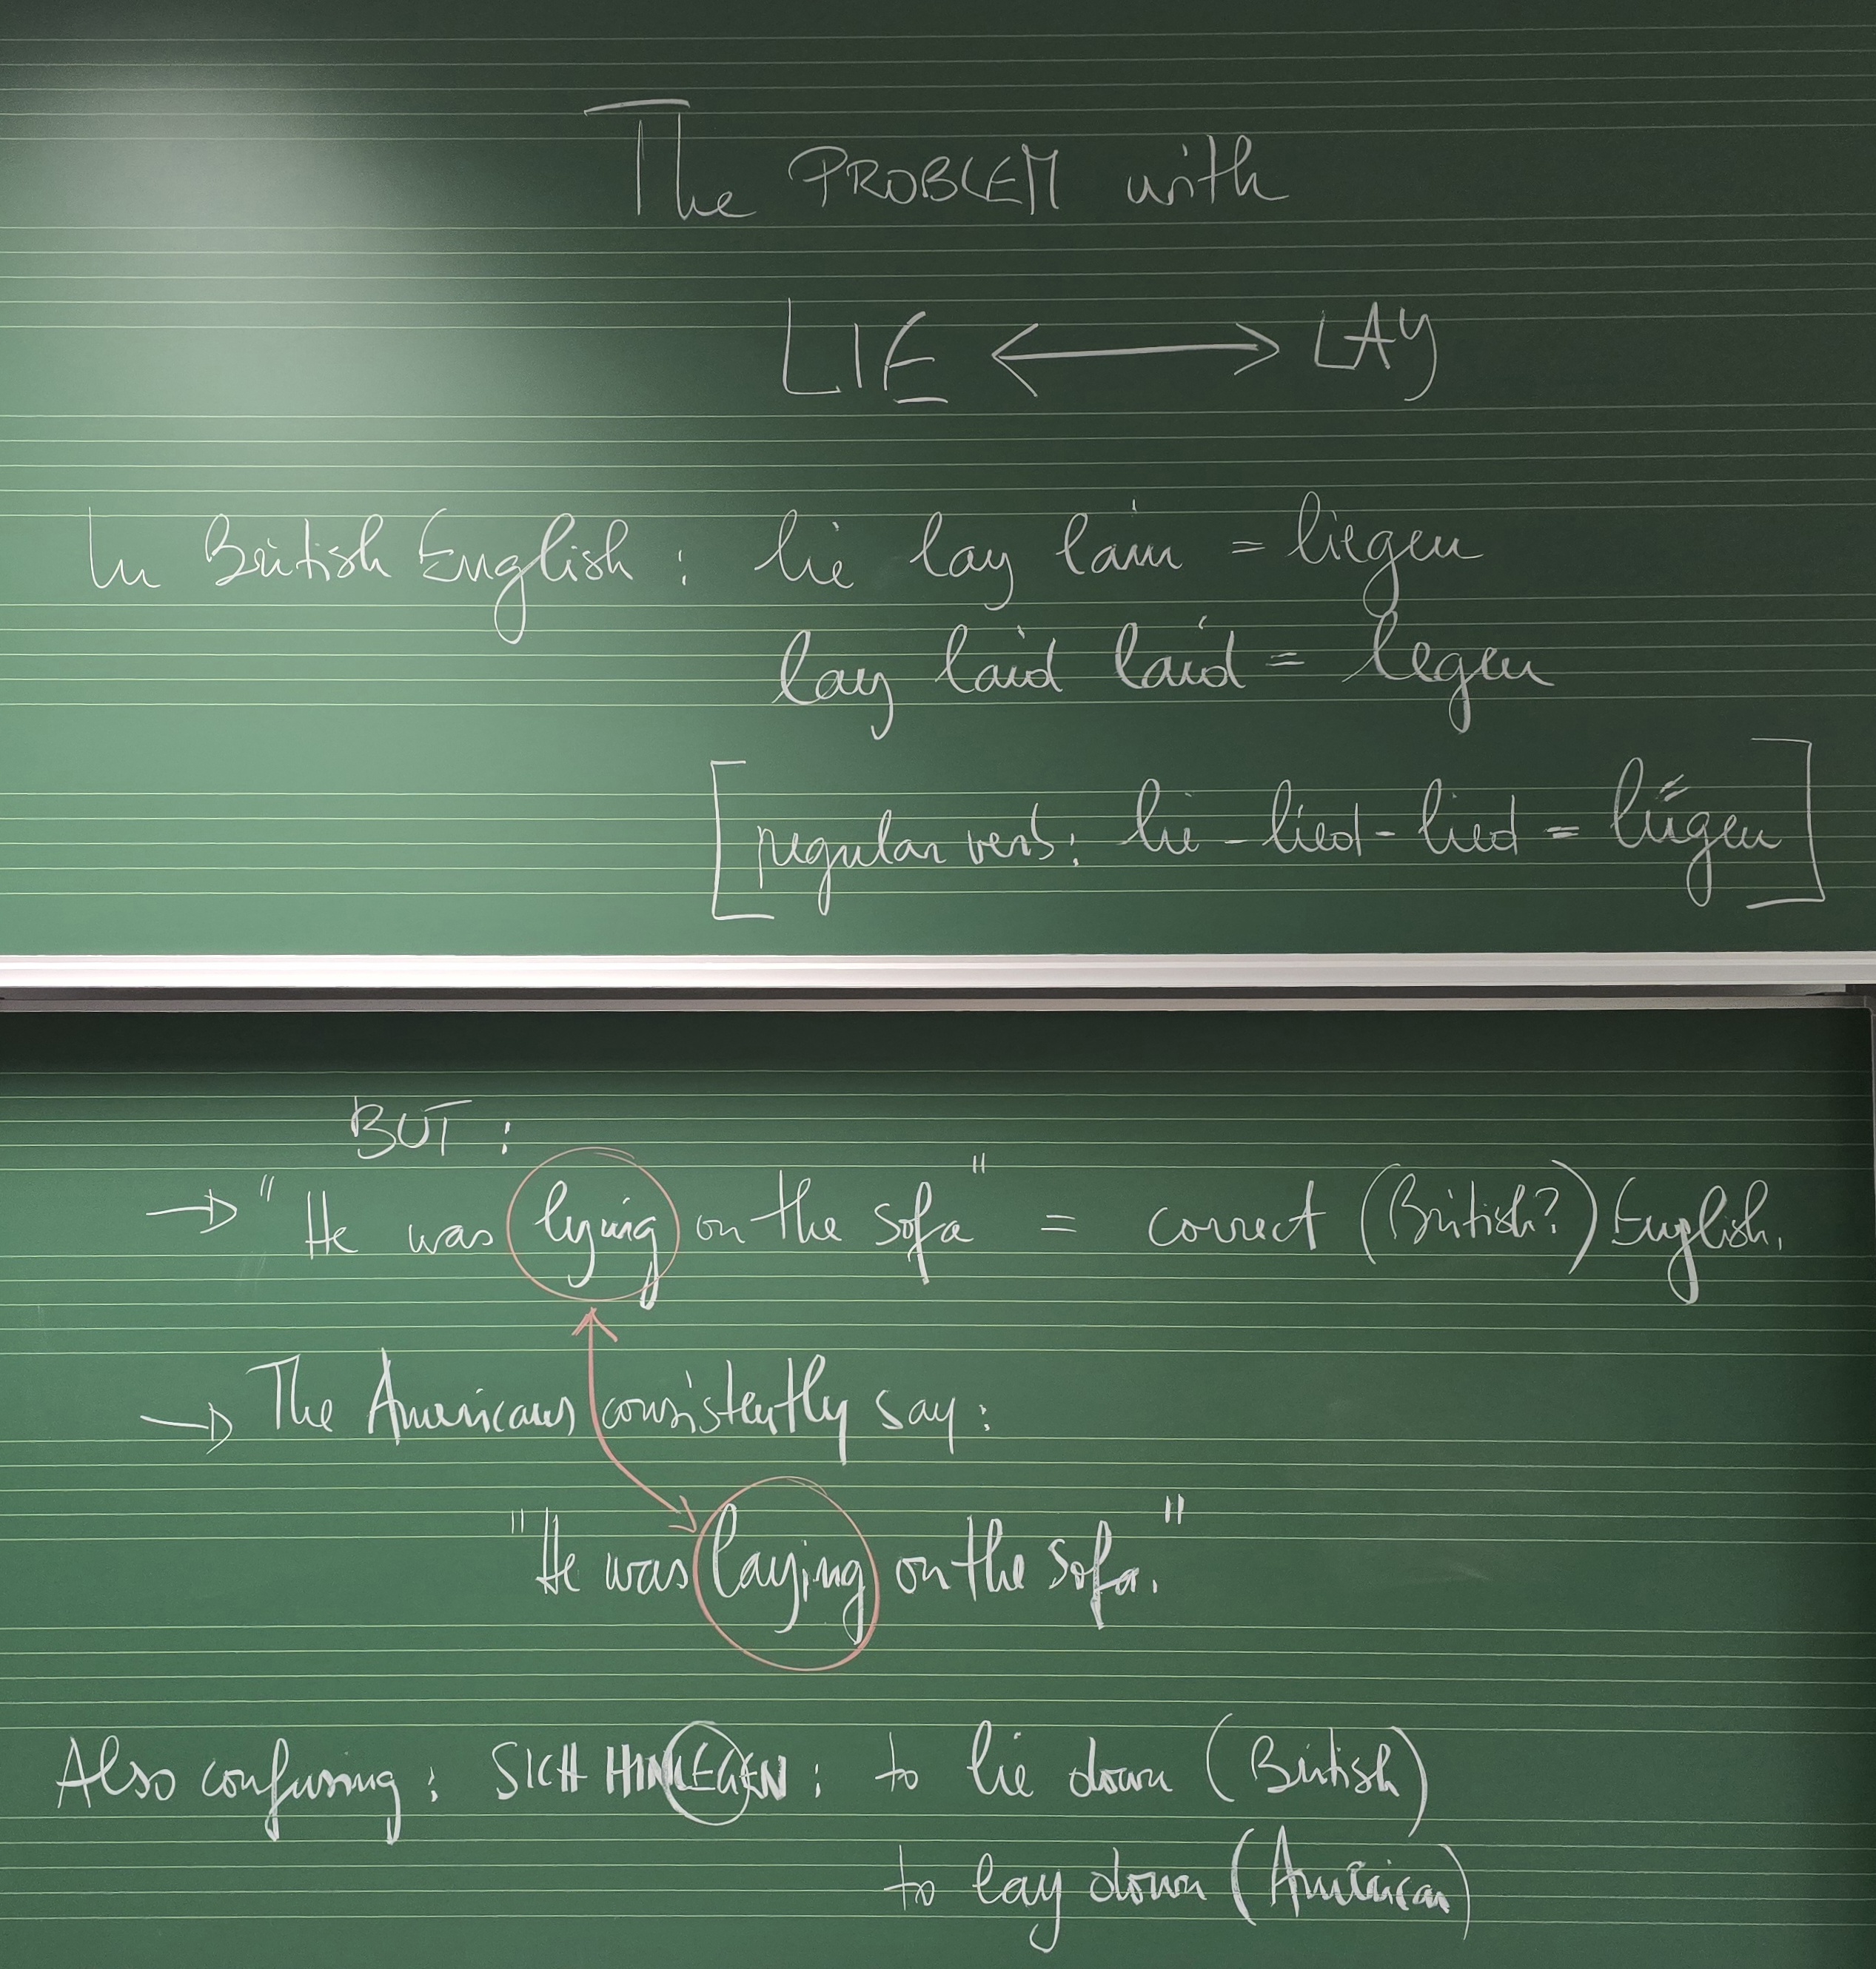 The PROBLEM with
LIE ⟷ LAY
In British English : lie lay lain = liegen
lay laid laid = legen
[regular verb: lie - lied - lied = lügen]
BUT :
→ "He was lying on the sofa" = correct (British?) English.
→ The Americans consistently say :
"He was laying on the sofa."
Also confusing : SICH HINLEGEN : to lie down (British)
to lay down (American)